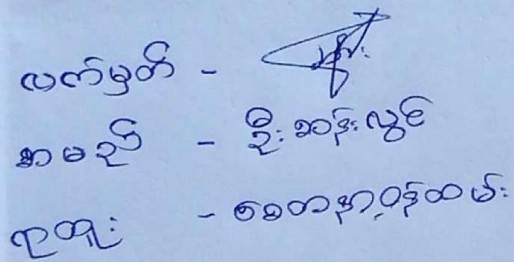 လက်မှတ် -
အမည် - ဦးဆန်းလွင်
ရာထူး - စေတနာ့ဝန်ထမ်း